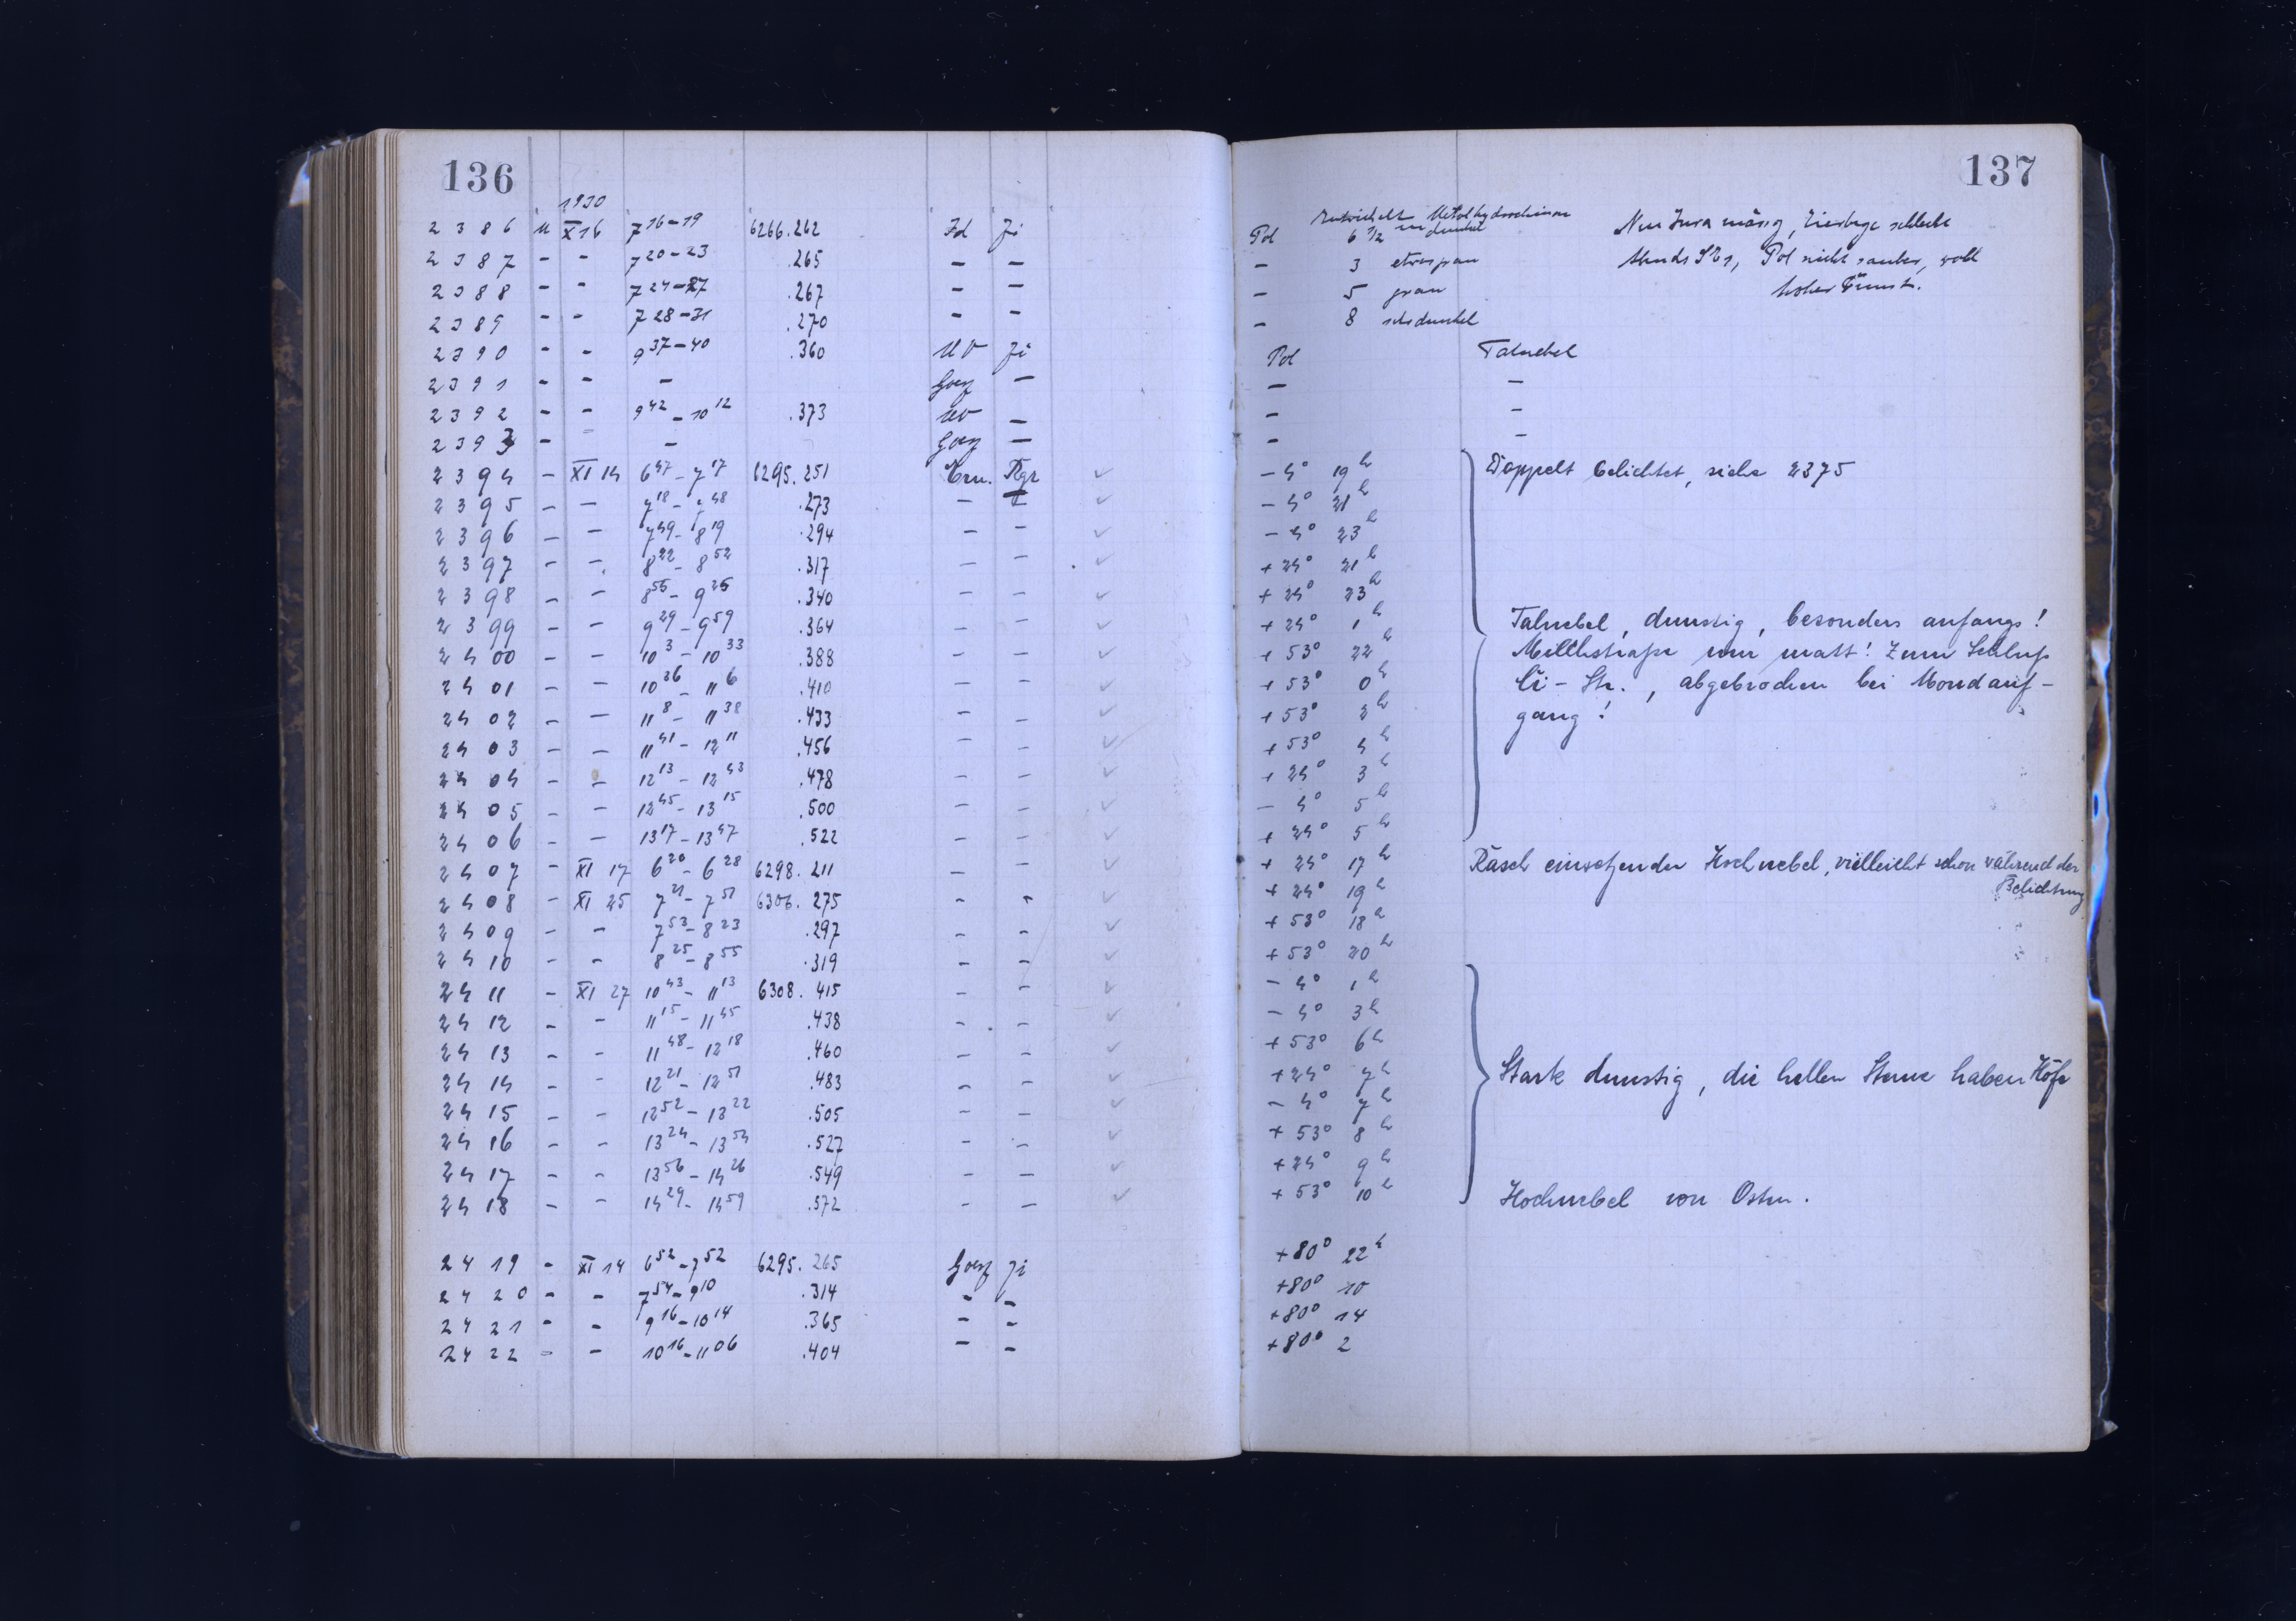 136
1930
2386 M X 16 7 16-19 6266.262 Zd Zi
2387 - - 7 20-23 .265 - -
2388 - - 7 24-27 .267 - -
2389 - - 7 28-31 .270 - -
2390 - - 9 37-40 .360 UV Zi
2391 - - - Goerz -
2392 - - 9 42 - 10 12 .373 UV -
2393 - = - Goerz -
2394 - XI 14 6 47 - 7 17 6295.251 Ern. Rgr ✓
2395 - - 7 18 - 7 48 .273 - - ✓
2396 - - 7 49 - 8 19 .294 - - ✓
2397 - - 8 22 - 8 52 .317 - - ✓
2398 - - 8 55 - 9 25 .340 - - ✓
2399 - - 9 29 - 9 59 .364 - - ✓
2400 - - 10 3 - 10 33 .388 - - ✓
2401 - - 10 36 - 11 6 .410 - - ✓
2402 - - 11 8 - 11 38 .433 - - ✓
2403 - - 11 41 - 12 11 .456 - - ✓
2404 - - 12 13 - 12 43 .478 - - ✓
2405 - - 12 45 - 13 15 .500 - - ✓
2406 - - 13 17 - 13 47 .522 - - ✓
2407 - XI 17 6 20 - 6 28 6298.211 - ✓
2408 - XI 25 7 21 - 7 51 6306.275 - - ✓
2409 - - 7 53 - 8 23 .297 - - ✓
2410 - - 8 25 - 8 55 .319 - - ✓
2411 - XI 27 10 43 - 11 13 6308.415 - - ✓
2412 - - 11 15 - 11 45 .438 - - ✓
2413 - - 11 48 - 12 18 .460 - - ✓
2414 - - 12 21 - 12 51 .483 - - ✓
2415 - - 12 52 - 13 22 .505 - - ✓
2416 - - 13 24 - 13 54 .527 - - ✓
2417 - - 13 56 - 14 26 .549 - - ✓
2418 - - 14 29 - 14 59 .572 - - ✓
2419 - XI 14 6 52 - 7 52 6295.265 Goerz Zi
2420 - - 7 54 - 9 10 .314 - -
2421 - - 9 16 - 10 14 .365 - -
2422 - - 10 16 - 11 06 .404 - -
137
Entwickelt Metolhydrochinon
Pol 6 1/2 m dunkel mässig, schlecht
- 3 etwas grau Pol nicht sauber, wohl
- 5 grau hoher Dunst.
- 8 sehr dunkel
Pol Talnebel
- -
- -
- -
- 4° 19h Doppelt belichtet, siehe 2375
- 4° 21h
- 4° 23h
+ 24° 21h
+ 24° 23h
+ 24° 1h Talnebel, dunstig, besonders anfangs!
+ 53° 22h Milchstraße nur matt! Zum Schluß
+ 53° 0h Ci-Str., abgebrochen bei Mondauf-
+ 53° 2h gang!
+ 53° 4h
+ 24° 3h
- 4° 5h
+ 24° 5h
+ 24° 17h Rasch einsetzender Hochnebel, vielleicht schon während der
Belichtung
+ 24° 19h
+ 53° 18h
+ 53° 20h
- 4° 1h
- 4° 3h
+ 53° 6h
+ 24° 7h Stark dunstig, die hellen Sterne haben Höfe
- 4° 7h
+ 53° 8h
+ 24° 9h
+ 53° 10h Hochnebel von Osten.
+80° 22h
+80° 10
+80° 14
+80° 2